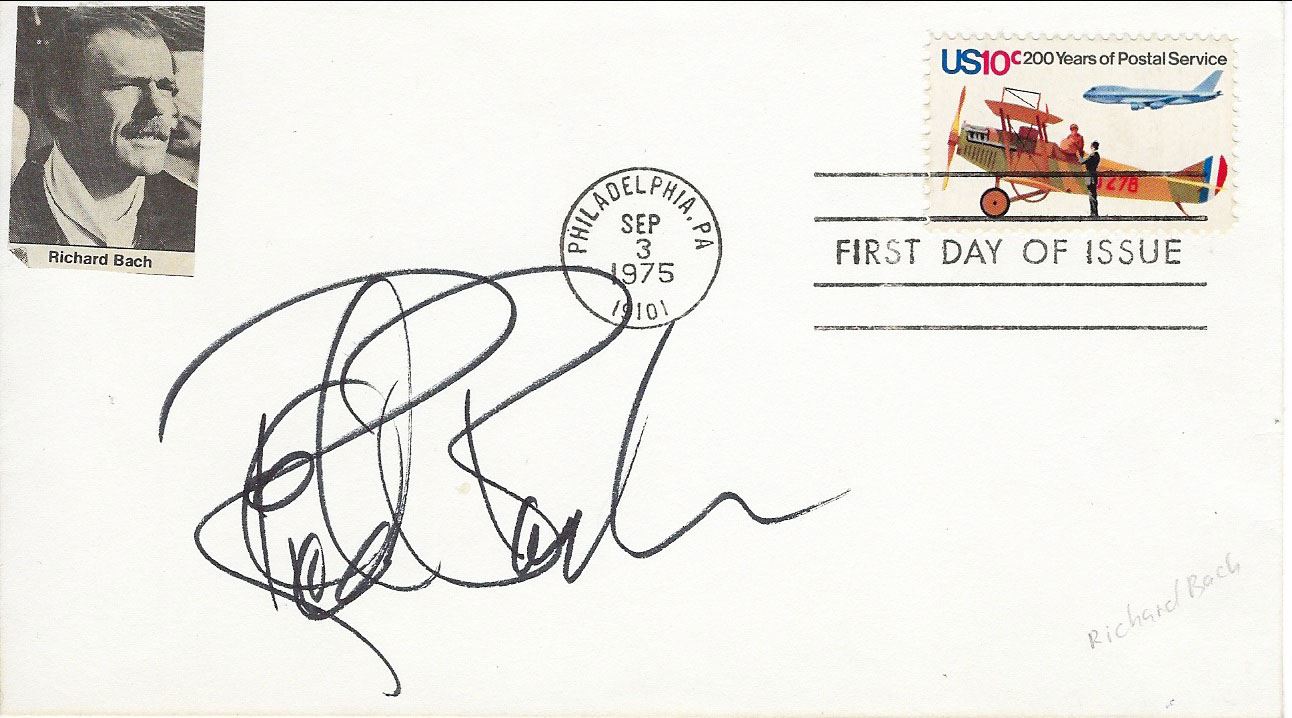 US10c 200 Years of Postal Service
PHILADELPHIA, PA
SEP
3
1975
19101
FIRST DAY OF ISSUE
Richard Bach
Richard Bach